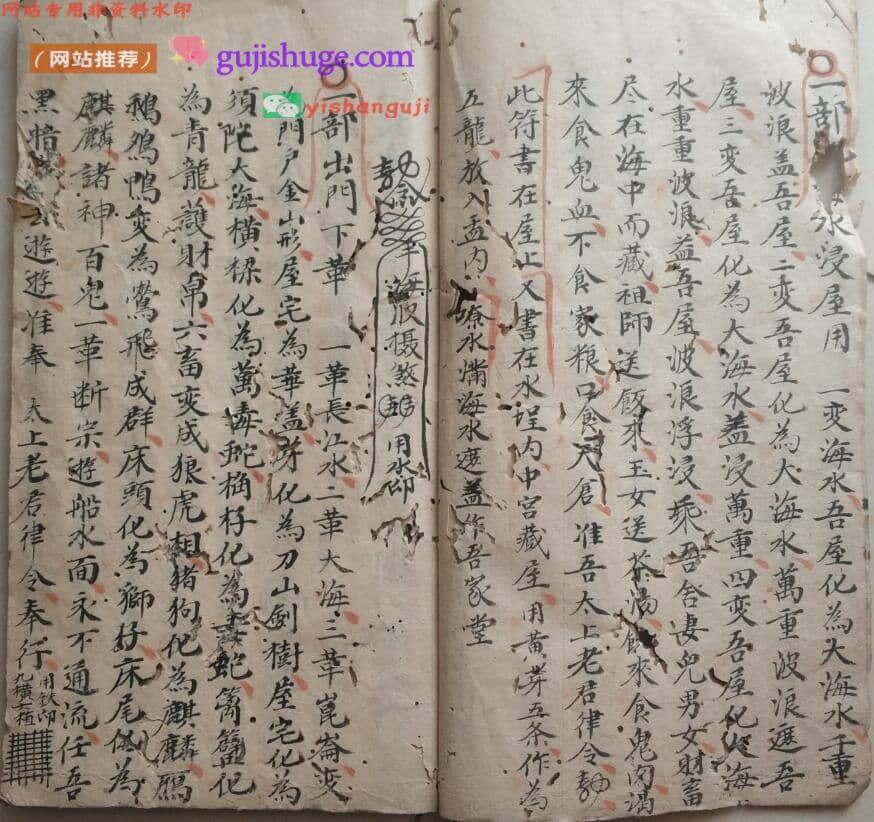 网站专用非资料水印
(网站推荐)
gujishuge.com
yishanguji
一部水浸屋用 一变海水吾屋化為大海水千重
波浪盖吾屋二变吾屋化為大海水萬重波浪遮吾
屋三变吾屋化為大海水盖浸萬重四变吾屋化海
水重重波浪益吾屋波浪浮浸乘吾舍妻兒男女財畜
尽在海中而藏祖師送飯來玉女送茶湯飢來食鬼肉渴
來食鬼血不食家粮口食天倉准吾太上老君律令勅
此符書在屋上又書在水埕内中宫藏屋用黄芽五条作為
五龍放入盂内水海水遮盖作吾家堂
勅海收摄煞用水印
一部出門下華 一華長江水二華大海三華崑崙变
為門户金山形屋宅為華盖芽化為刀山劍樹屋宅化為
須陀大海橫樑化為萬毒蛇桷仔化為毒蛇篱笆化
為青龍護財帛六畜变成狼虎相猪狗化為麒麟鴈
鵝鴨变為鶯飛成群床頭化為獅仔床尾化為
麒麟諸神百鬼一華断宗遊船水面永不通流任吾
黑暗遊遊准奉 太上老君律令奉行
用鉄印
九横六植